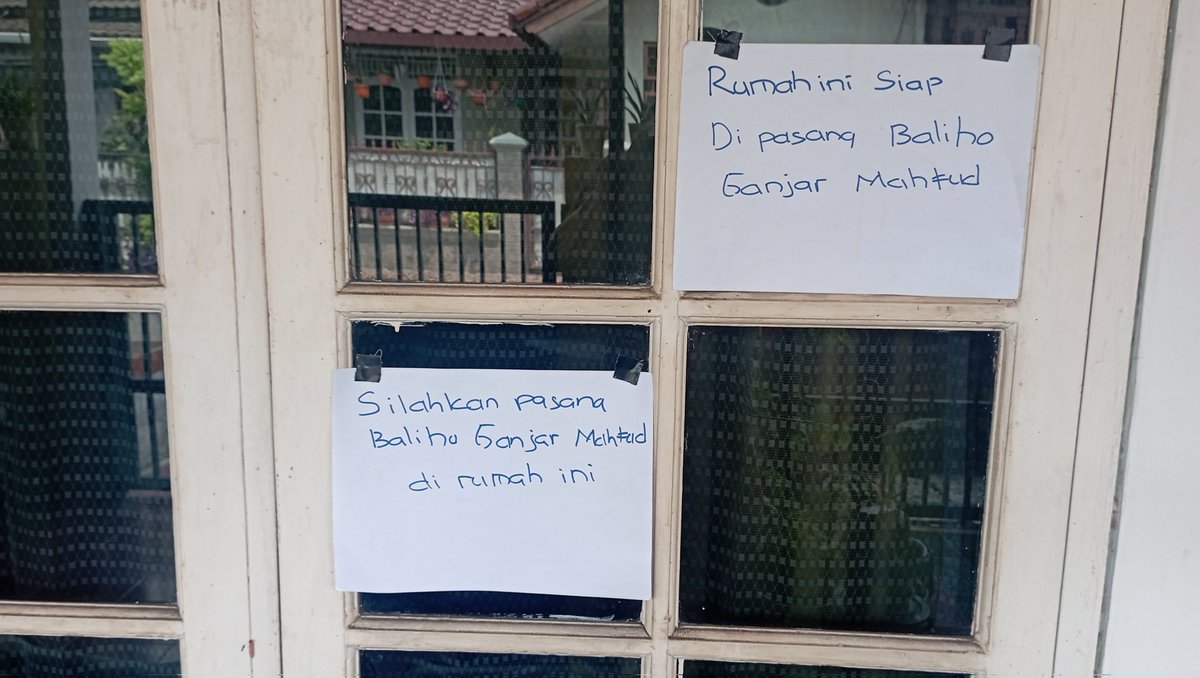 Rumah ini Siap
Di pasang Baliho
Ganjar Mahfud
Silahkan pasang
Baliho Ganjar Mahfud
di rumah ini